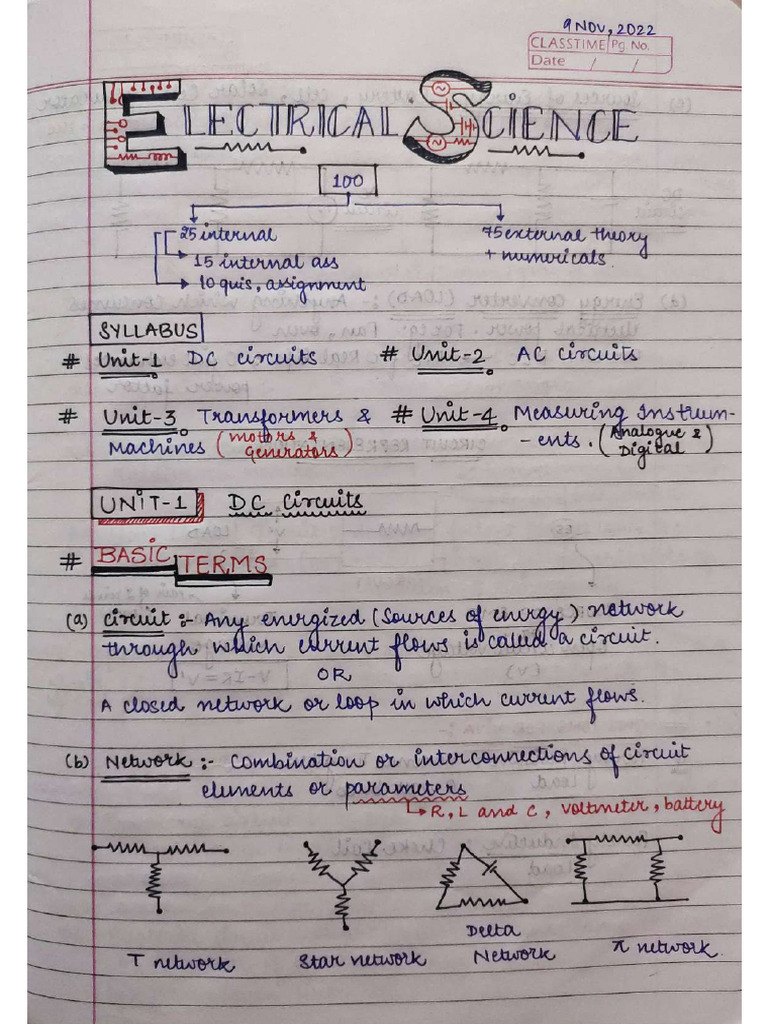 9 NOV, 2022
CLASSTIME Pg. No.
Date / /
ELECTRICAL SCIENCE
100
25 internal
75 external theory
+ numericals.
15 internal ass
10 quis, assignment
SYLLABUS
# Unit-1 DC circuits # Unit-2 AC circuits
# Unit-3 Transformers & # Unit-4 Measuring Instrum-
Machines (motors & -ents. (Analogue &
Generators) Digital)
UNIT-1 DC Circuits
# BASIC TERMS
(a) Circuit :- Any energized (Sources of energy) network
through which current flows is called a circuit.
OR
A closed network or loop in which current flows.
(b) Network :- Combination or interconnections of circuit
elements or parameters
R, L and C, voltmeter, battery
T network Star network Delta Network π network